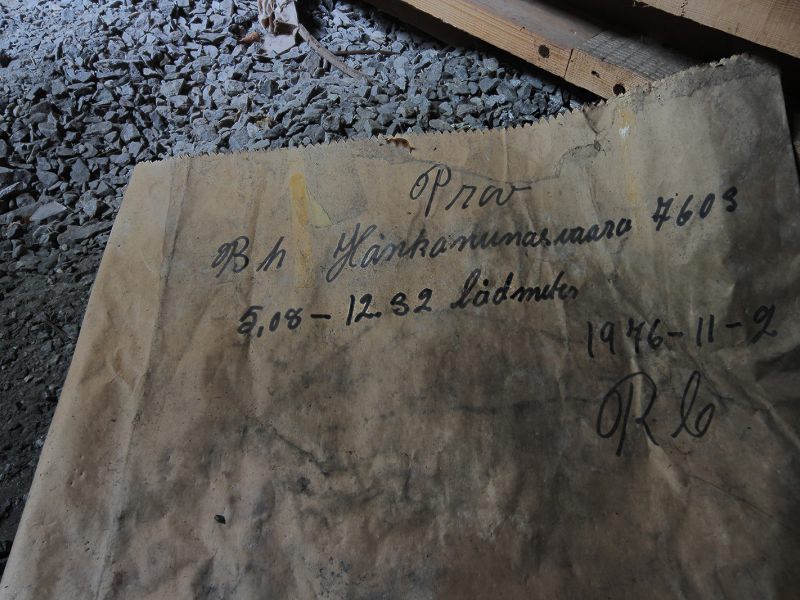 Prov
Bh Hånkanunasvaara 7603
5,08-12.32 lådmeter
1976-11-2
Rb